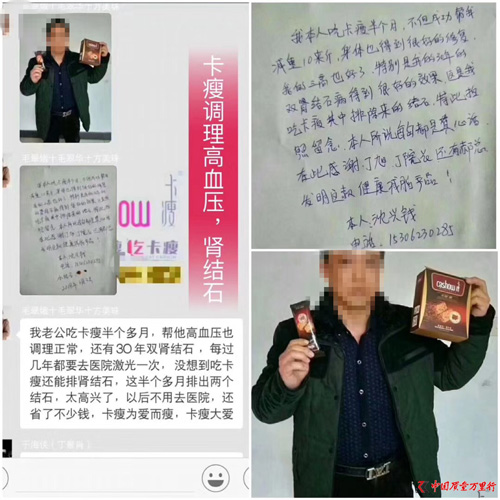 卡瘦调理高血压，肾结石
卡瘦
吃卡瘦
我老公吃卡瘦半个多月，帮他高血压也
调理正常，还有30年双肾结石，每过
几年都要去医院激光一次，没想到吃卡
瘦还能排肾结石，这半个多月排出两个
结石，太高兴了，以后不用去医院，还
省了不少钱，卡瘦为爱而瘦，卡瘦大爱
我本人吃卡瘦半个月，不但成功帮我
减重10来斤，身体也得到很好的修复，
我的三高也好了，特别是我的30年的
双肾结石病得到很好的效果，这是我
吃卡瘦其中排除来的结石，特此拍
照留念，本人所说句句都是真心话
发明自款健康减脂产品！
本人：沈兴钱
电话：15306230285
cashow
中国质量万里行